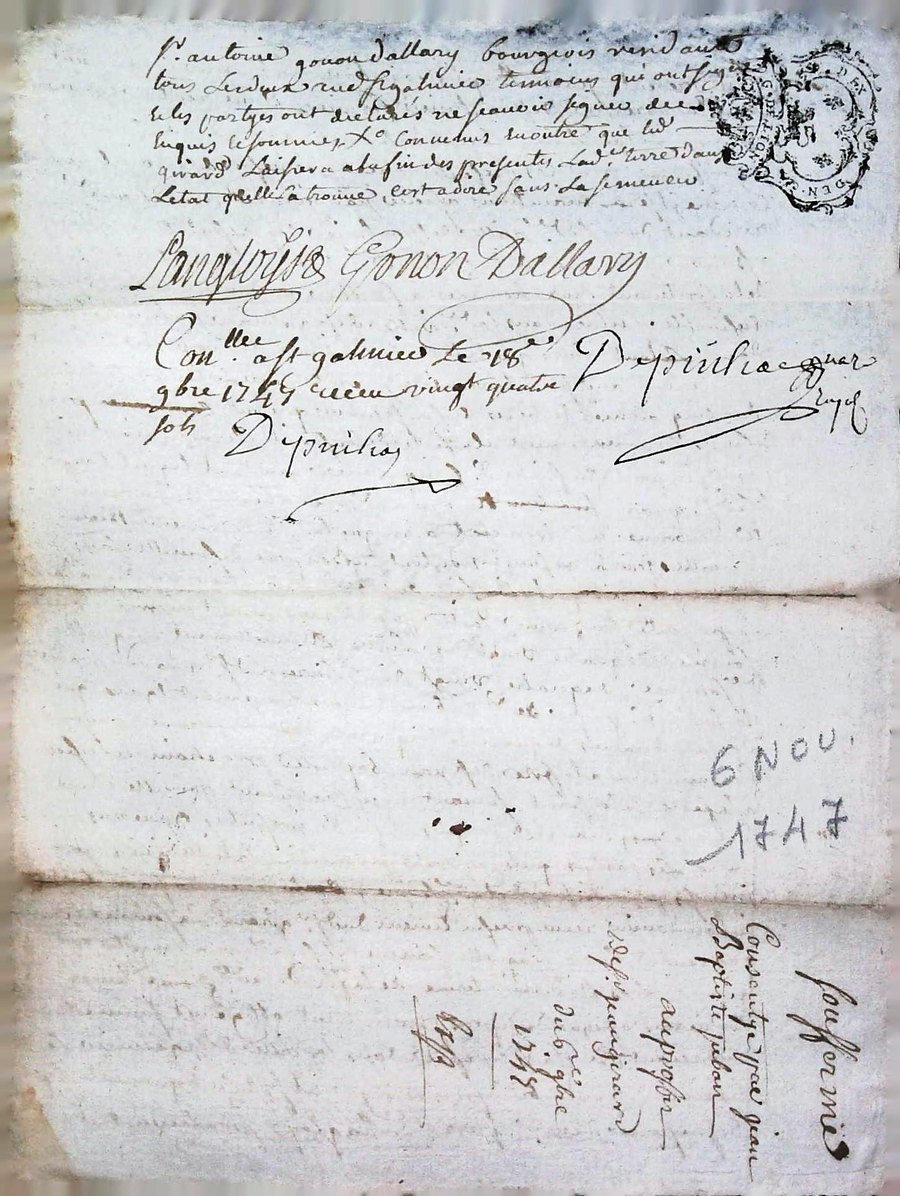 Sr. antoine gonon dallary bourgeois residants
tous Lesdeux aud st galmier temoins qui ont
Et les partyes ont declarés ne scavoir signer de ce
Enquis et sommés Xo Convenus En outre que led
girard Laissera a la fin des presentes Lade terre dans
Letat quelle se trouve cest a dire sans La semence
Langloys Gonon Dallary
Conllee a st galmier le 18e
9bre 1747 receu vingt quatre
sols Depinhac
Depinhac
6 NOV.
1747
souffermé
Consentye par jean
Baptiste
au proffit
de jean girard
du 6e 9bre
1747